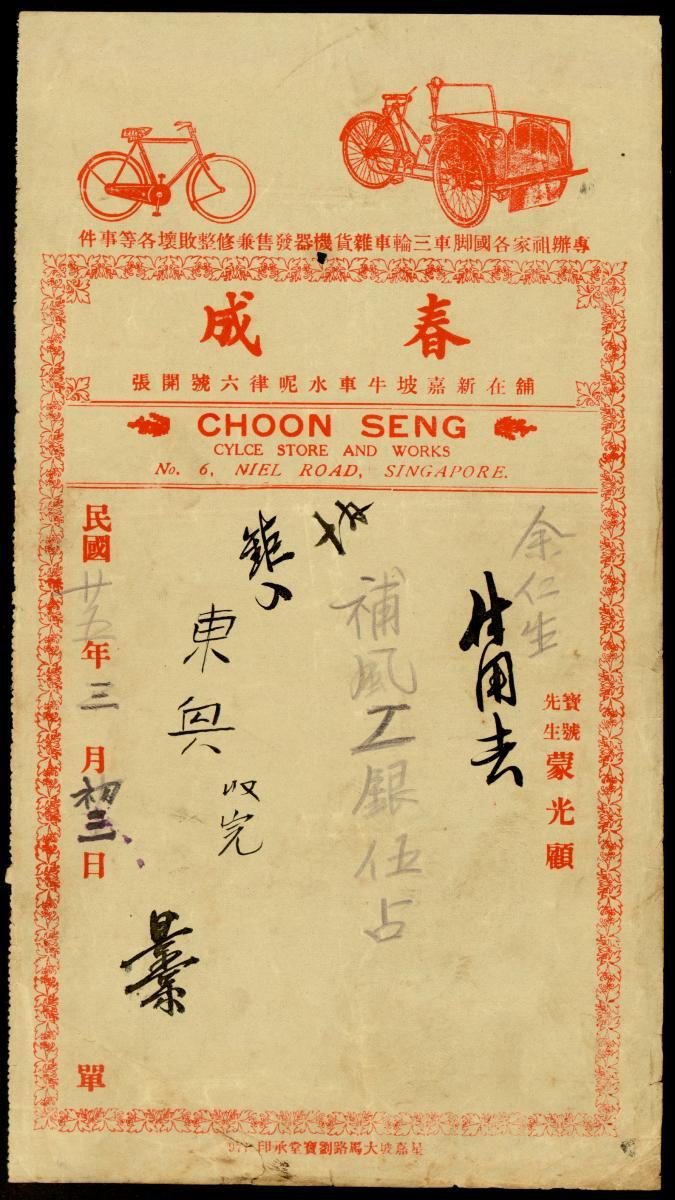 專辦祖家各國脚車三輪車雜貨機器發售兼修整敗壞各等事件
春成
舖在新嘉坡牛車水呢律六號開張
CHOON SENG
CYLCE STORE AND WORKS
No. 6, NIEL ROAD, SINGAPORE.
余仁生
寶號
先生
蒙光顧
補風工銀伍占
東興收完
民國廿五年三月初三日
單
星嘉坡大馬路劉寶堂承印